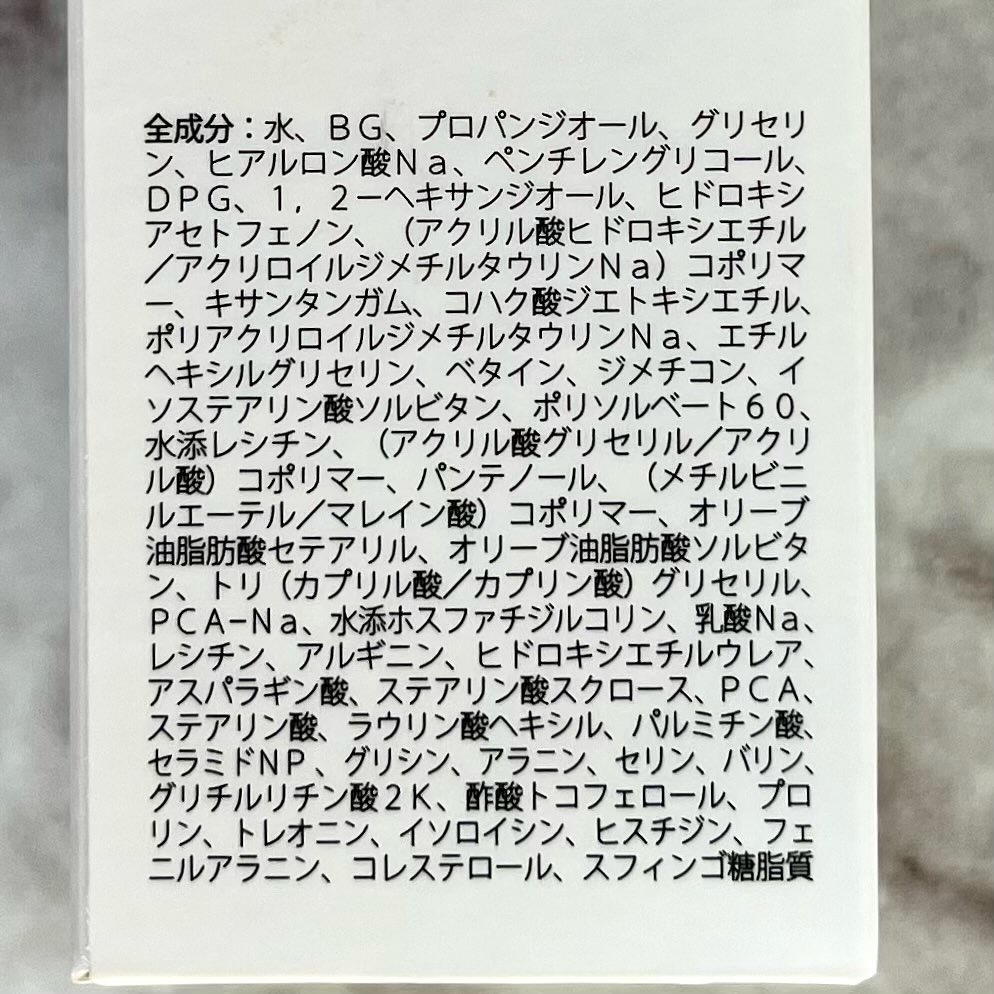 全成分：水、ＢＧ、プロパンジオール、グリセリ
ン、ヒアルロン酸Ｎａ、ペンチレングリコール、
ＤＰＧ、１，２－ヘキサンジオール、ヒドロキシ
アセトフェノン、（アクリル酸ヒドロキシエチル
／アクリロイルジメチルタウリンＮａ）コポリマ
ー、キサンタンガム、コハク酸ジエトキシエチル、
ポリアクリロイルジメチルタウリンＮａ、エチル
ヘキシルグリセリン、ベタイン、ジメチコン、イ
ソステアリン酸ソルビタン、ポリソルベート６０、
水添レシチン、（アクリル酸グリセリル／アクリ
ル酸）コポリマー、パンテノール、（メチルビニ
ルエーテル／マレイン酸）コポリマー、オリーブ
油脂肪酸セテアリル、オリーブ油脂肪酸ソルビタ
ン、トリ（カプリル酸／カプリン酸）グリセリル、
ＰＣＡ−Ｎａ、水添ホスファチジルコリン、乳酸Ｎａ、
レシチン、アルギニン、ヒドロキシエチルウレア、
アスパラギン酸、ステアリン酸スクロース、ＰＣＡ、
ステアリン酸、ラウリン酸ヘキシル、パルミチン酸、
セラミドＮＰ、グリシン、アラニン、セリン、バリン、
グリチルリチン酸２Ｋ、酢酸トコフェロール、プロ
リン、トレオニン、イソロイシン、ヒスチジン、フェ
ニルアラニン、コレステロール、スフィンゴ糖脂質